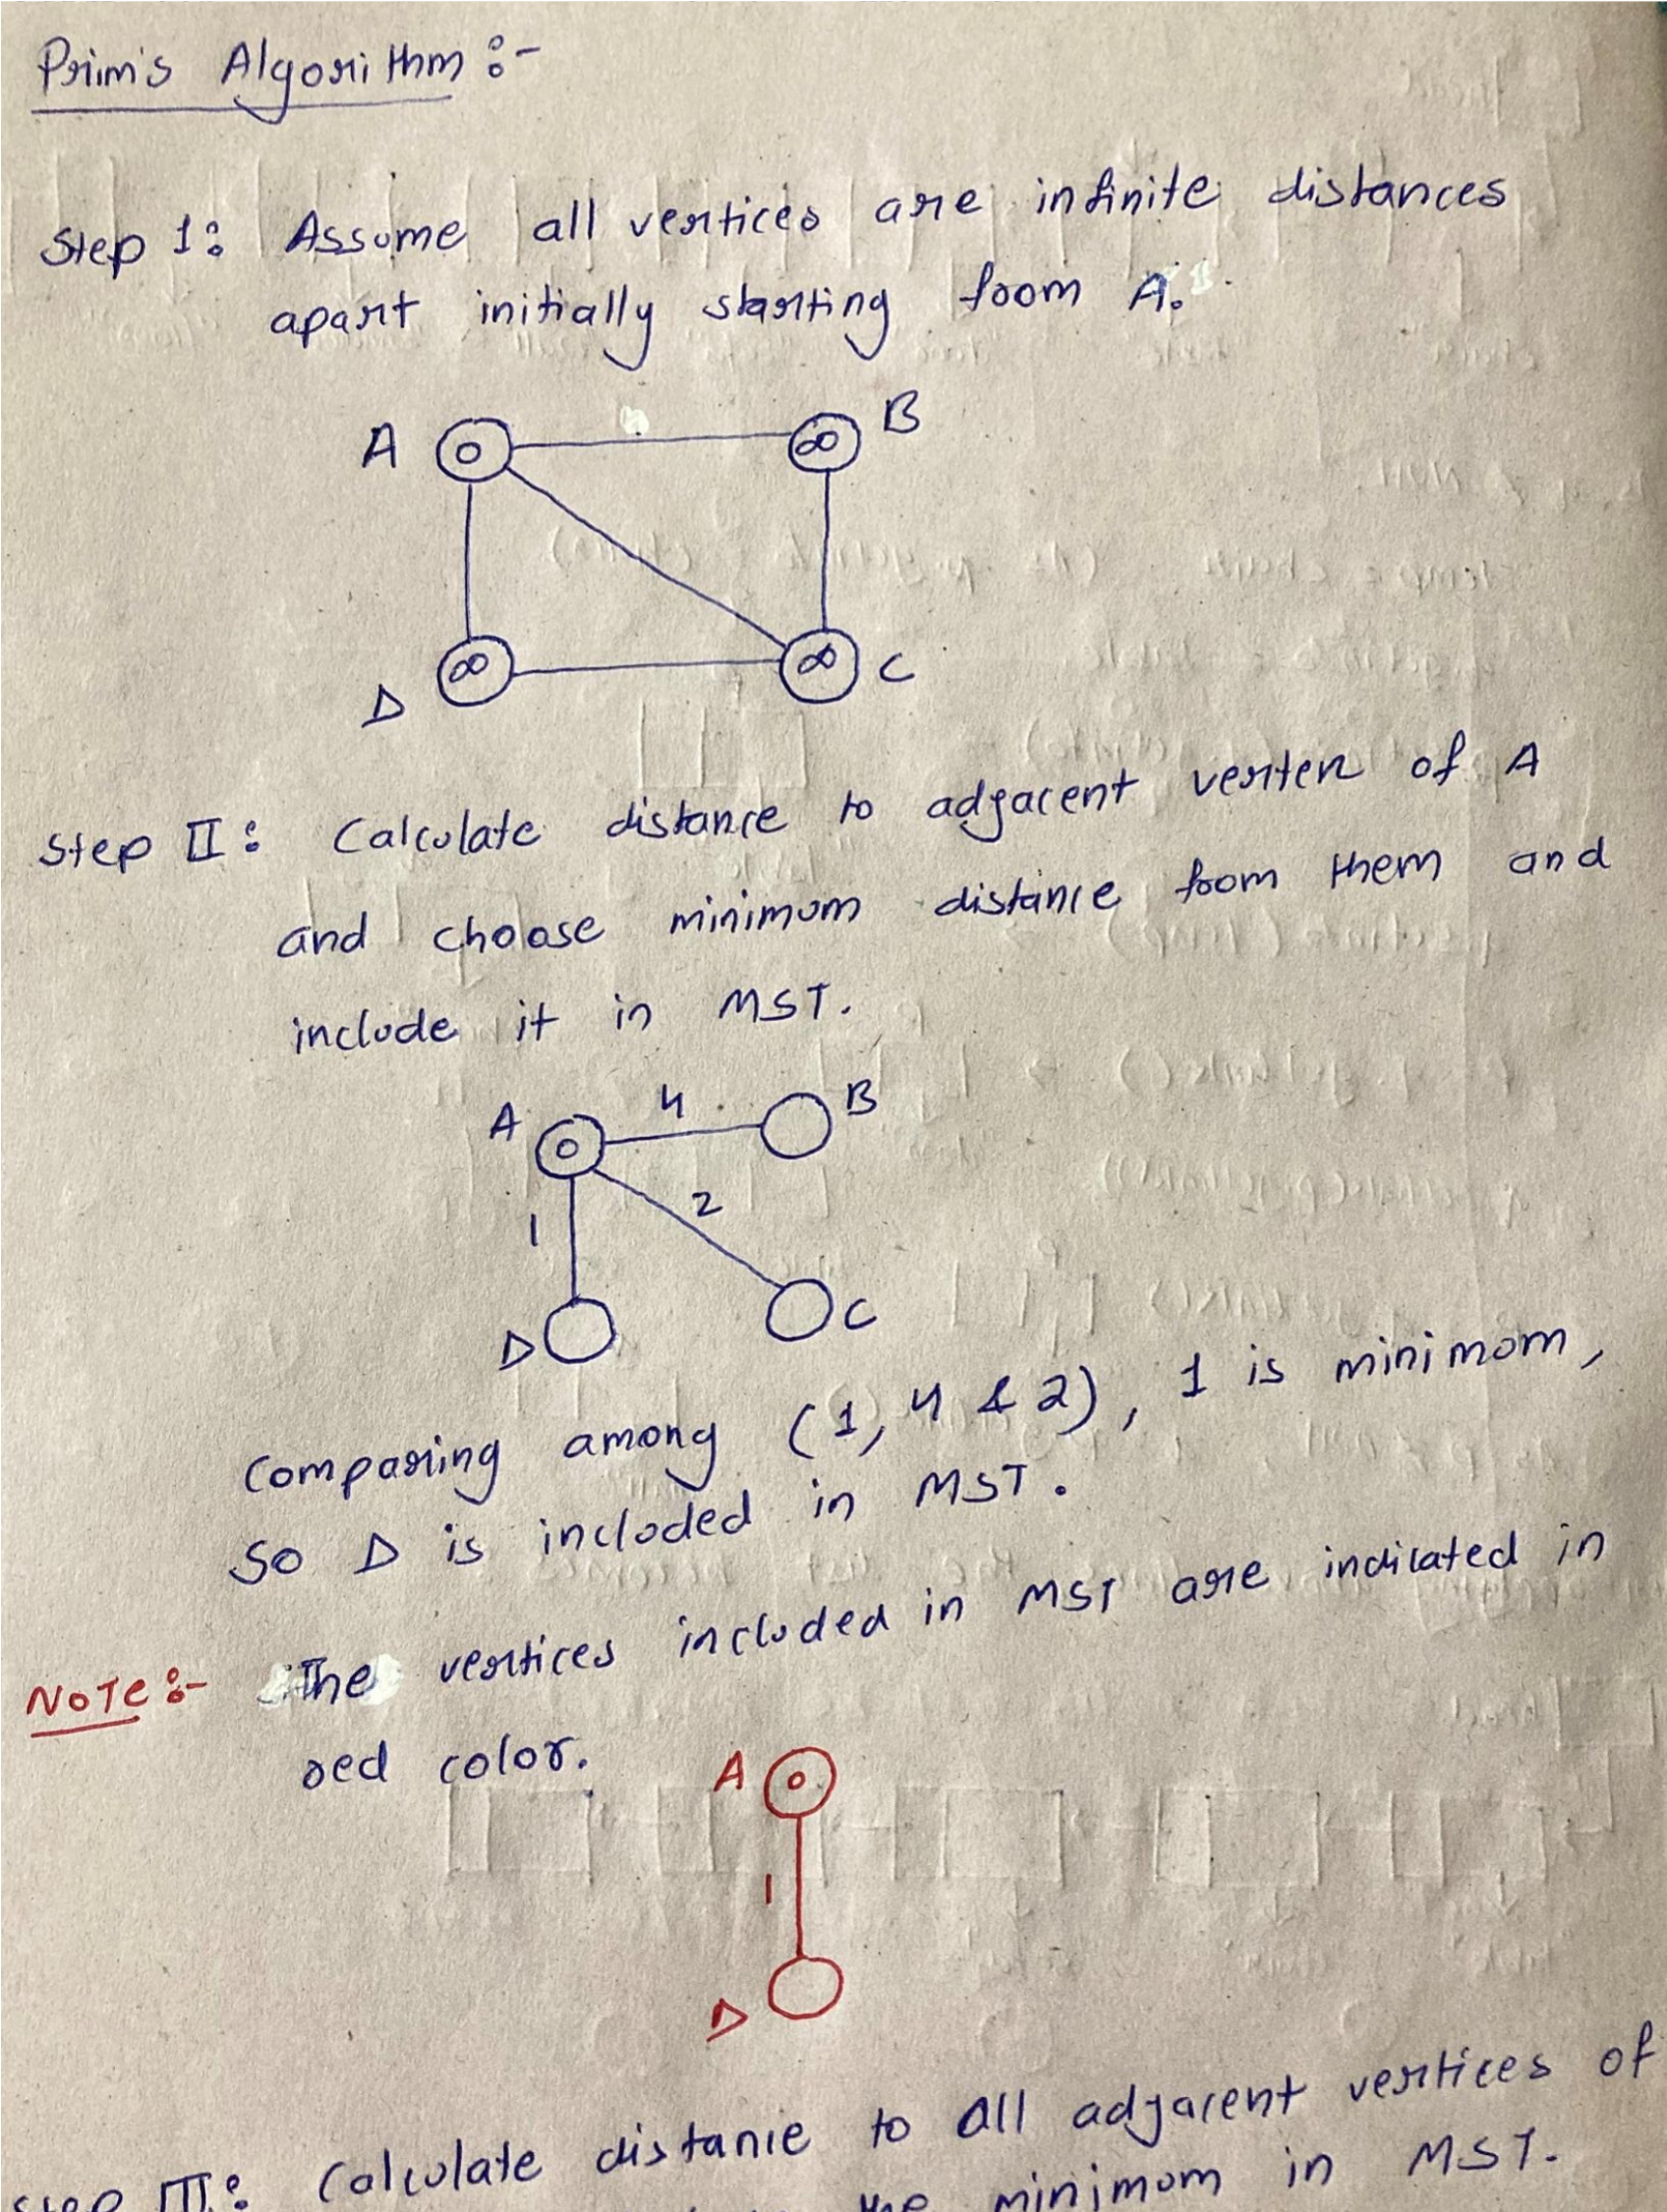 Prim's Algorithm :-
Step 1: Assume all vertices are infinite distances
apart initially starting from A.
A 0 ∞ B
∞ ∞ C
D
Step II: Calculate distance to adjacent vertex of A
and choose minimum distance from them and
include it in MST.
A 0 4 B
1 2
D C
Comparing among (1, 4 & 2), 1 is minimum,
So D is included in MST.
NOTE:- The vertices included in MST are indicated in
red color.
A 0
1
D
Step III: Calculate distance to all adjacent vertices of
the minimum in MST.